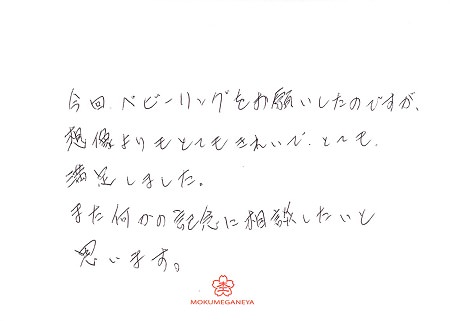 今回、ベビーリングをお願いしたのですが、
想像よりもとてもきれいで、とても、
満足しました。
また何かの記念に相談したいと
思います。
MOKUMEGANEYA